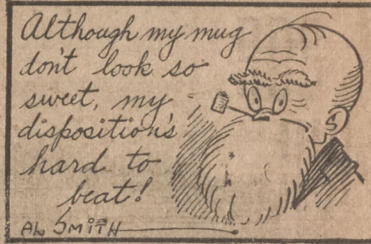 Although my mug
don't look so
sweet, my
disposition's
hard to
beat!
AL SMITH